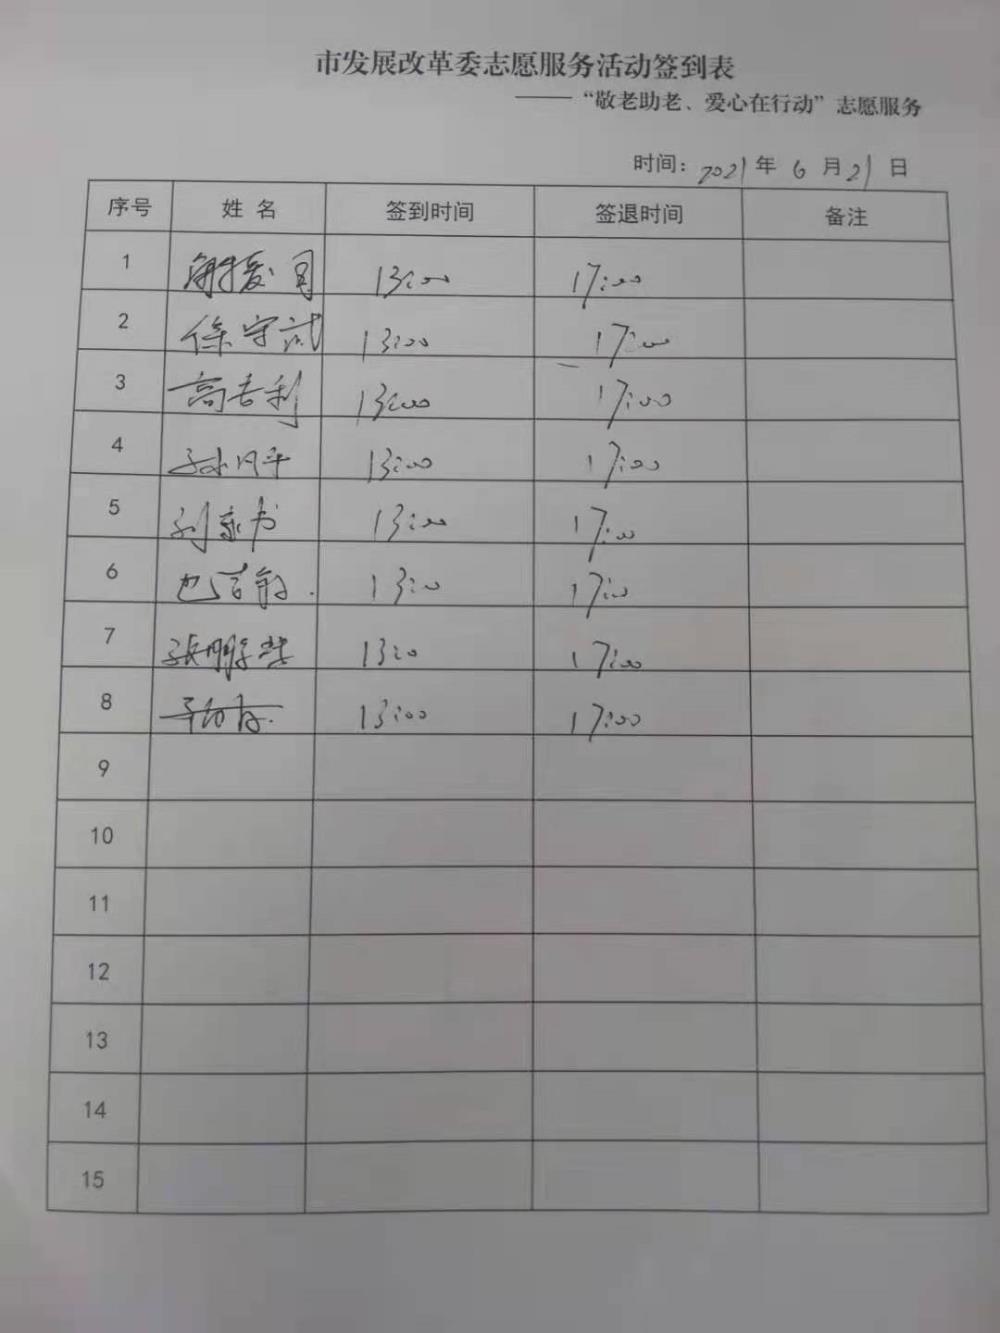 市发展改革委志愿服务活动签到表
——“敬老助老、爱心在行动”志愿服务
时间：2021年6月21日
序号 姓名 签到时间 签退时间 备注
1 13:00 17:00
2 徐守试 13:00 17:00
3 高吉利 13:00 17:00
4 孙月平 13:00 17:00
5 刘家书 13:00 17:00
6 13:00 17:00
7 张鹏 13:00 17:00
8 13:00 17:00
9
10
11
12
13
14
15